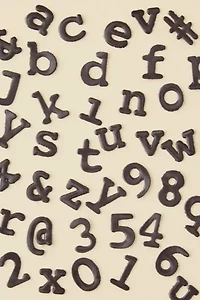 a c e v *
& b d f p
J k i n o p
y s t u v w
? & z y 9 8
r @ 3 5 4 6
2 x 0 1 6
u